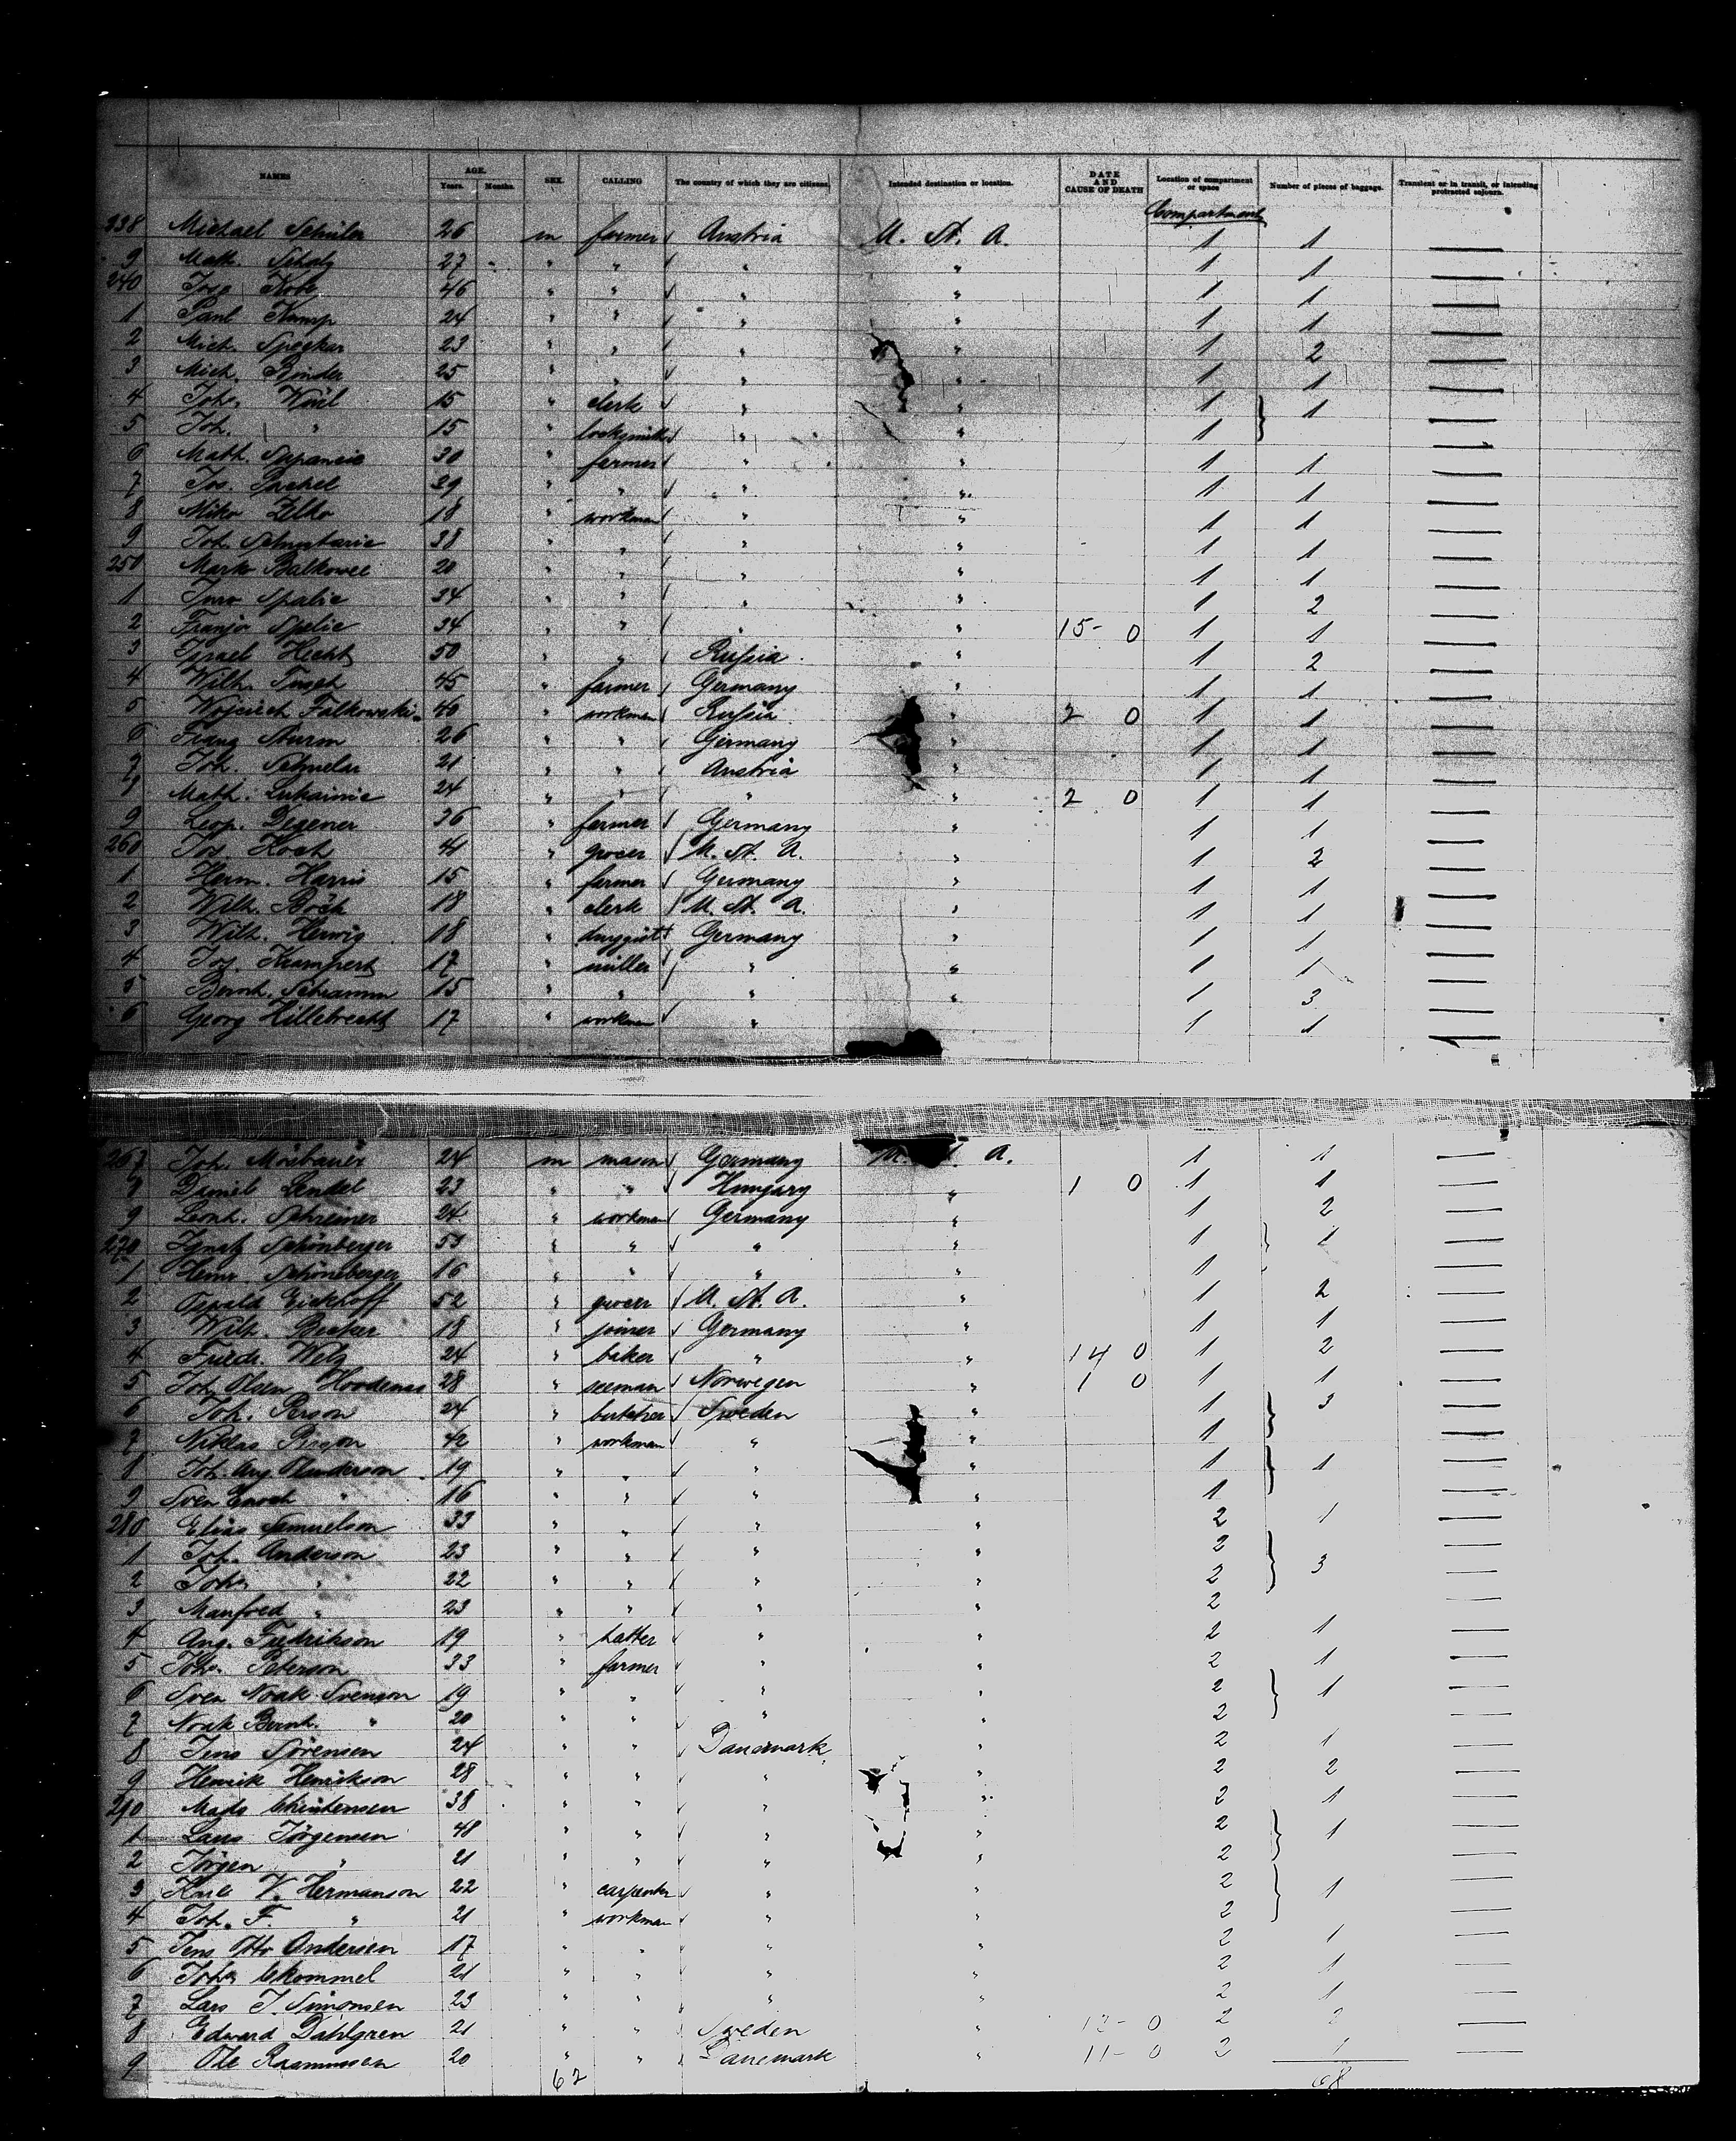 NAMES AGE. Years. Months. SEX. CALLING The country of which they are citizens. Intended destination or location. DATE AND CAUSE OF DEATH Location of compartment or space Number of pieces of baggage. Transient or in transit, or intending protracted sojourn.
Compartment
238 Michael 26 m farmer Austria U. St. A. 1 1 —
9 Math. 27 " " " " 1 1 —
240 46 " " " " 1 1 —
1 Paul 24 " " " " 1 1 —
2 Mich. 23 " " " " 1 2 —
3 Mich. Binder 25 " " " " 1 1 —
4 Joh. 15 " clerk " " 1 } 1 —
5 Joh. " 15 " locksmith " " 1 —
6 Math. 30 " farmer " " 1 1 —
7 Jos. 39 " " " " 1 1 —
8 Miko Zelko 18 " workman " " 1 1 —
9 Joh. 38 " " " " 1 1 —
250 Marko 20 " " " " 1 1 —
1 34 " " " " 1 2 —
2 Franjo 34 " " " " 15- 0 1 1 —
3 Israel Hecht 50 " " Russia " 1 2 —
4 Wilh. 45 " farmer Germany " 1 1 —
5 Wojciech Falkowski 40 " workman Russia " 2 0 1 1 —
6 Franz Sturm 26 " " Germany " 1 1 —
7 Joh. 21 " " Austria " 1 1 —
8 Math. 24 " " " " 2 0 1 1 —
9 Leop. Degener 36 " farmer Germany " 1 1 —
260 Jos. Koch 41 " grocer U. St. A. " 1 2 —
1 Herm. Harris 15 " farmer Germany " 1 1 —
2 Wilh. 18 " clerk U. St. A. " 1 1 —
3 Wilh. Herwig 18 " druggist Germany " 1 1 —
4 Jos. Krampert 17 " miller " " 1 1 —
5 Bernh. Schramm 15 " " " " 1 3 —
6 Georg Hillebrecht 17 " workman " " 1 1 —
267 Joh. Mosbauer 24 m mason Germany A. 1 1 —
8 Daniel Lendel 23 " " Hungary " 1 0 1 1 —
9 Leonh. Schreiner 24 " workman Germany " 1 2 —
270 Ignatz Schönberger 51 " " " " 1 } 1 —
1 Heinr. Schöneberger 16 " " " " 1 —
2 Oswald Eickhoff 52 " grocer U. St. A. " 1 2 —
3 Wilh. Becker 18 " joiner Germany " 1 1 —
4 Friedr. Welz 24 " baker " " 14 0 1 2 —
5 Joh. Olsen 28 " seeman Norwegen " 1 0 1 1 —
6 Joh. Person 24 " butcher Sweden " 1 } 3 —
7 Niklas Person 42 " workman " " 1 —
8 Joh. Aug. 19 " " " " 1 } 1 —
9 Sven Enoch " 16 " " " " 1 —
280 Elias Samuelson 33 " " " " 2 1 —
1 Joh. Anderson 23 " " " " 2 } 3 —
2 Joh. " 22 " " " " 2 —
3 Manfred " 23 " " " " 2 —
4 Aug. Fredrikson 19 " hatter " " 2 1 —
5 Joh. Peterson 33 " farmer " " 2 1 —
6 Sven Noak Svenson 19 " " " " 2 } 1 —
7 Noak Bernh. " 20 " " " " 2 —
8 Jens Sörensen 24 " " Danemark " 2 1 —
9 Henrik Henrikson 28 " " " " 2 2 —
290 Mads Christensen 38 " " " " 2 1 —
1 Lars Jörgensen 48 " " " " 2 } 1 —
2 Jörgen " 21 " " " " 2 —
3 Karl V. Hermanson 22 " carpenter " " 2 } 1 —
4 Joh. F. " 21 " workman " " 2 —
5 Jens Otto Andersen 17 " " " " 2 1 —
6 Joh. 21 " " " " 2 1 —
7 Lars J. Simonsen 23 " " " " 2 1 —
8 Edward Dahlgren 21 " " Sweden " 13- 0 2 2 —
9 Ole Rasmussen 20 " " Danemark " 11- 0 2 1 —
62 68